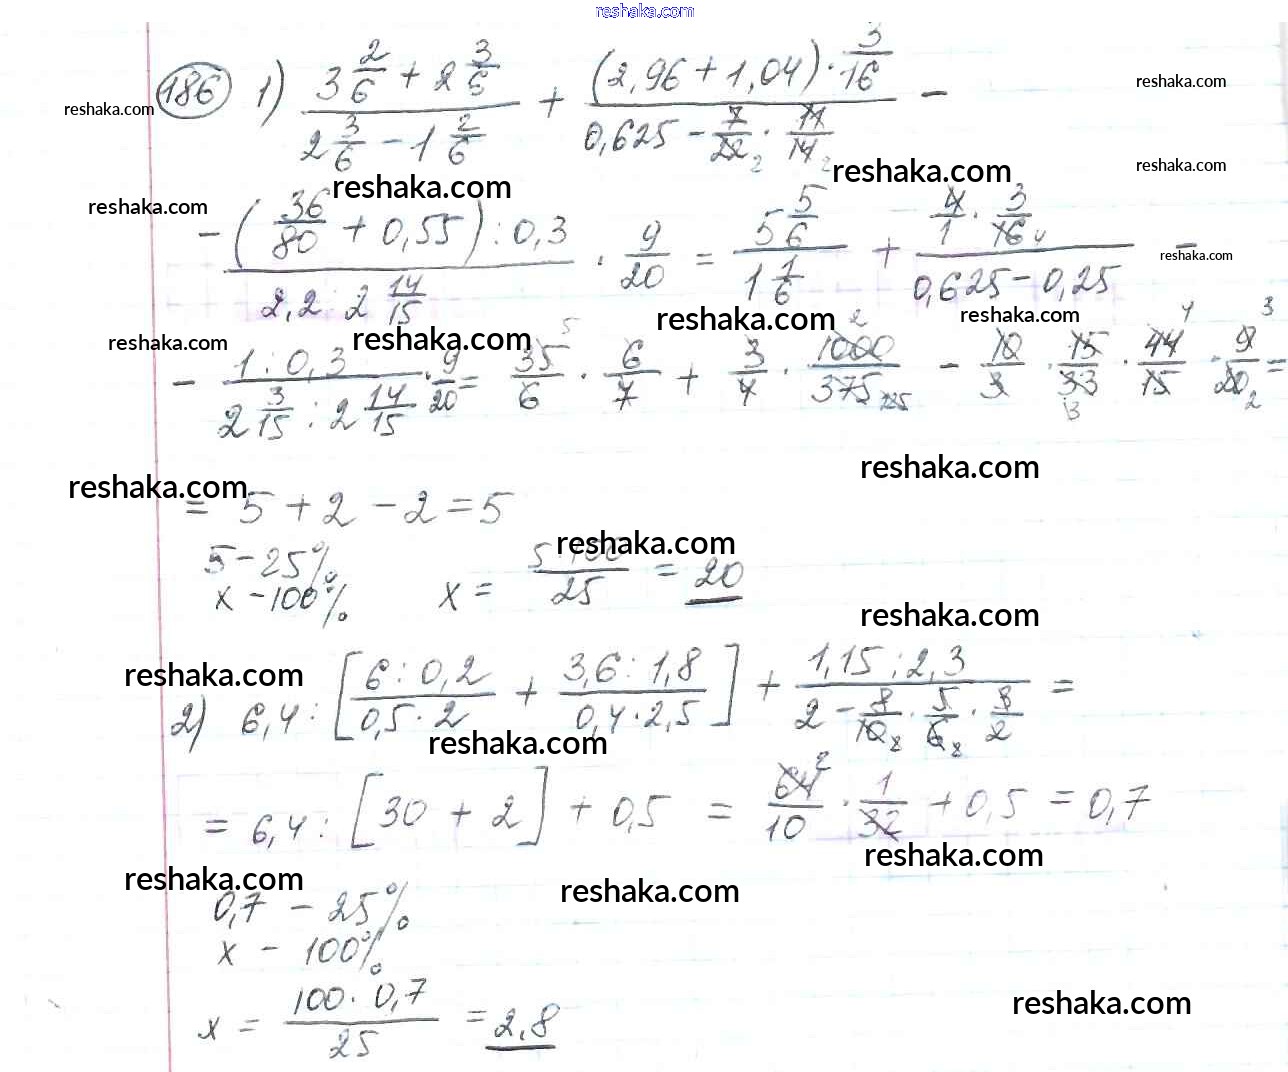 reshaka.com
186 1) (3 2/6 + 2 3/6)/(2 3/6 − 1 2/6) + ((2,96 + 1,04) · 3/16)/(0,625 − 7/22 · 11/14) −
reshaka.com reshaka.com
reshaka.com reshaka.com reshaka.com
− ((36/80 + 0,55) : 0,3)/(2,2 : 2 14/15) · 9/20 = (5 5/6)/(1 1/6) + (4/1 · 3/16)/(0,625 − 0,25) −
reshaka.com reshaka.com
reshaka.com reshaka.com reshaka.com reshaka.com
− (1 : 0,3)/(2 3/15 : 2 14/15) · 9/20 = 35/6 · 6/7 + 3/4 · 1000/375 − 10/3 · 15/33 · 44/15 · 9/20 =
reshaka.com
reshaka.com
= 5 + 2 − 2 = 5
reshaka.com
5 − 25%
x − 100% x = (5 · 100)/25 = 20
reshaka.com
reshaka.com
2) 6,4 : [(6 : 0,2)/(0,5 · 2) + (3,6 : 1,8)/(0,4 · 2,5)] + (1,15 : 2,3)/(2 − 8/10 · 5/6 · 3/2) =
reshaka.com
= 6,4 : [30 + 2] + 0,5 = 64/10 · 1/32 + 0,5 = 0,7
reshaka.com
reshaka.com reshaka.com
0,7 − 25%
x − 100%
reshaka.com
x = (100 · 0,7)/25 = 2,8